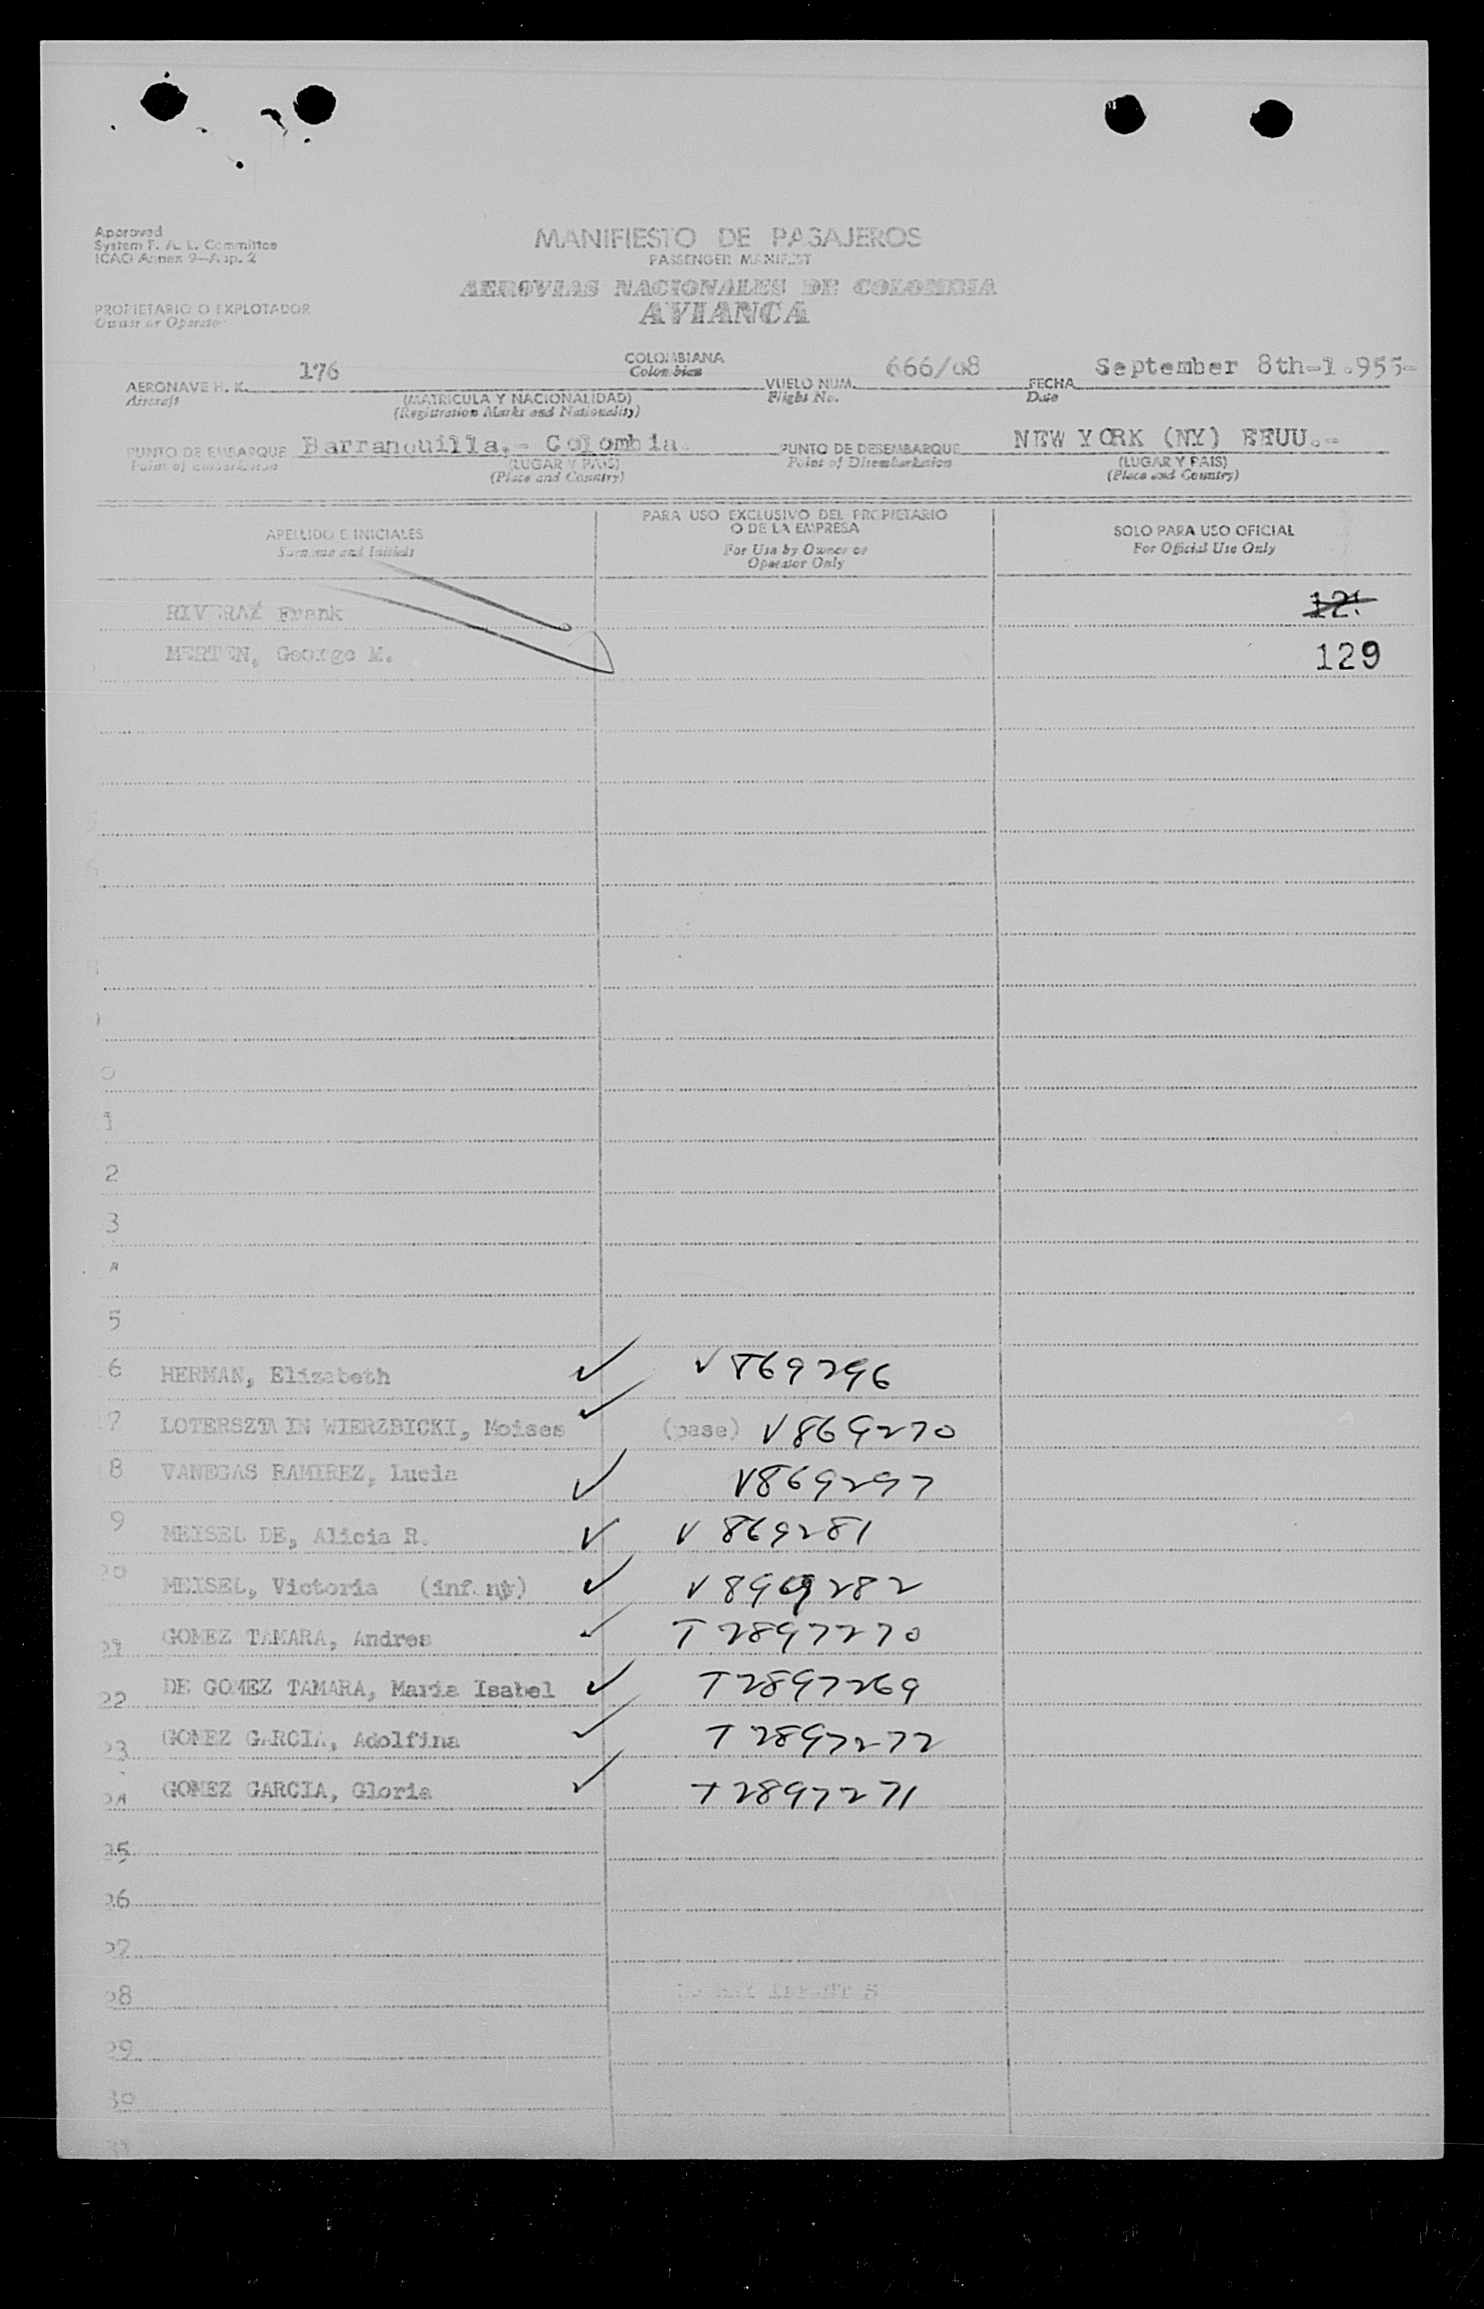 Approved
System F. A. L. Committee
ICAO Annex 9—App. 2
MANIFIESTO DE PASAJEROS
PASSENGER MANIFEST
AEROVIAS NACIONALES DE COLOMBIA
AVIANCA
PROPIETARIO O EXPLOTADOR
Owner or Operator
AERONAVE H. K. 176 COLOMBIANA VUELO NUM. 666/08 FECHA September 8th-1.955-
Aircraft Colombian Flight No. Date
(MATRICULA Y NACIONALIDAD)
(Registration Marks and Nationality)
PUNTO DE EMBARQUE Barranquilla,- Colombia. PUNTO DE DESEMBARQUE NEW YORK (NY) EEUU.-
Point of embarkation (LUGAR Y PAIS) Point of Disembarkation (LUGAR Y PAIS)
(Place and Country) (Place and Country)
APELLIDO E INICIALES
Surname and Initials
PARA USO EXCLUSIVO DEL PROPIETARIO
O DE LA EMPRESA
For Use by Owner or
Operator Only
SOLO PARA USO OFICIAL
For Official Use Only
Frank
MERTEN, George M. 129
0
1
2
3
5
6 HERMAN, Elizabeth ✓ V869296
7 LOTERSZTAIN WIERZBICKI, Moises ✓ (pase) V869270
8 VANEGAS RAMIREZ, Lucia ✓ V869297
9 MEISEL DE, Alicia R. ✓ V 869281
20 MEISEL, Victoria (infant) ✓ V 8969282
21 GOMEZ TAMARA, Andres ✓ T 2897270
22 DE GOMEZ TAMARA, Maria Isabel ✓ T2897269
23 GOMEZ GARCIA, Adolfina ✓ T 2897272
24 GOMEZ GARCIA, Gloria ✓ T2897271
25
26
27
28
29
30
31